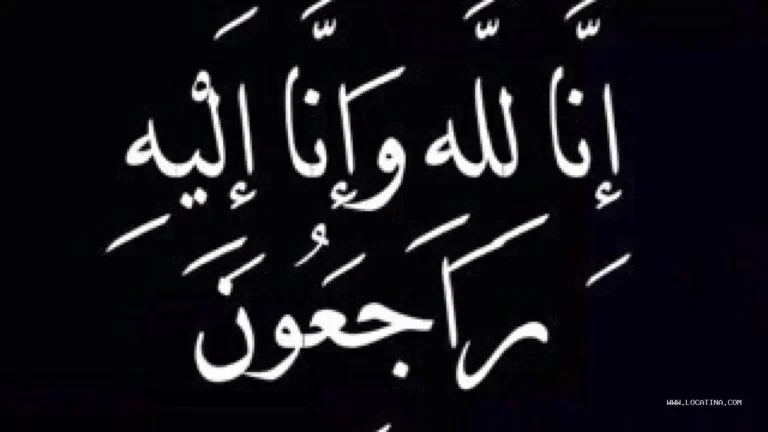 إِنَّا لِلَّهِ وَإِنَّا إِلَيْهِ
رَاجَعُونَ
WWW.LOCATINA.COM